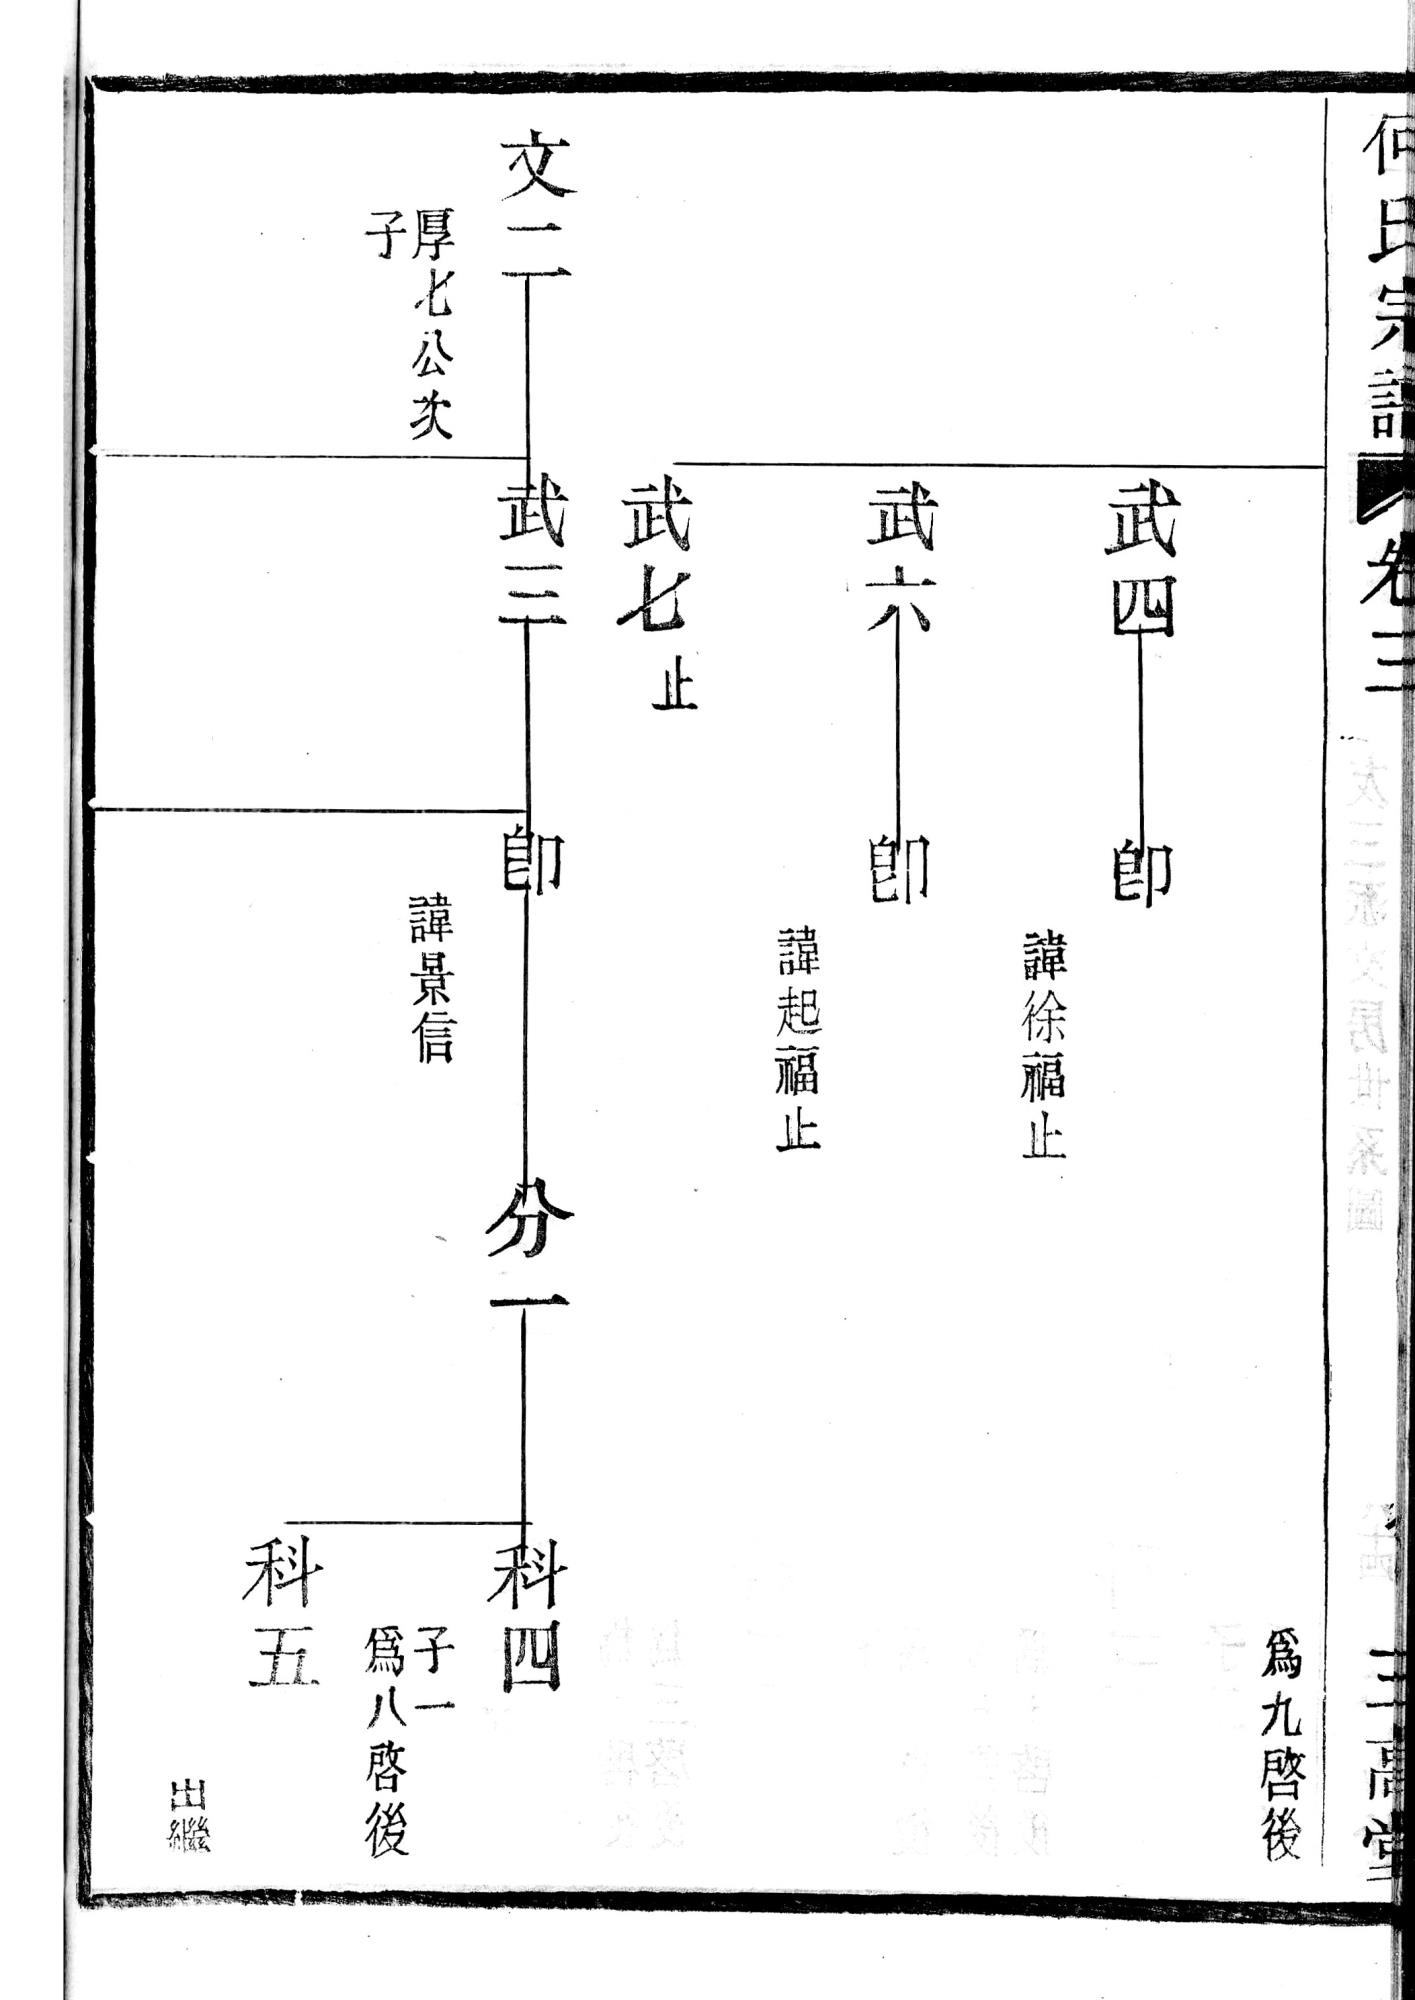 何氏宗譜
卷三
三高堂
爲九啓後
武四
卽
諱徐福止
武六
卽
諱起福止
武七
止
文二
厚七公次
子
武三
卽
諱景信
分一
科四
子一
爲八啓後
科五
出繼